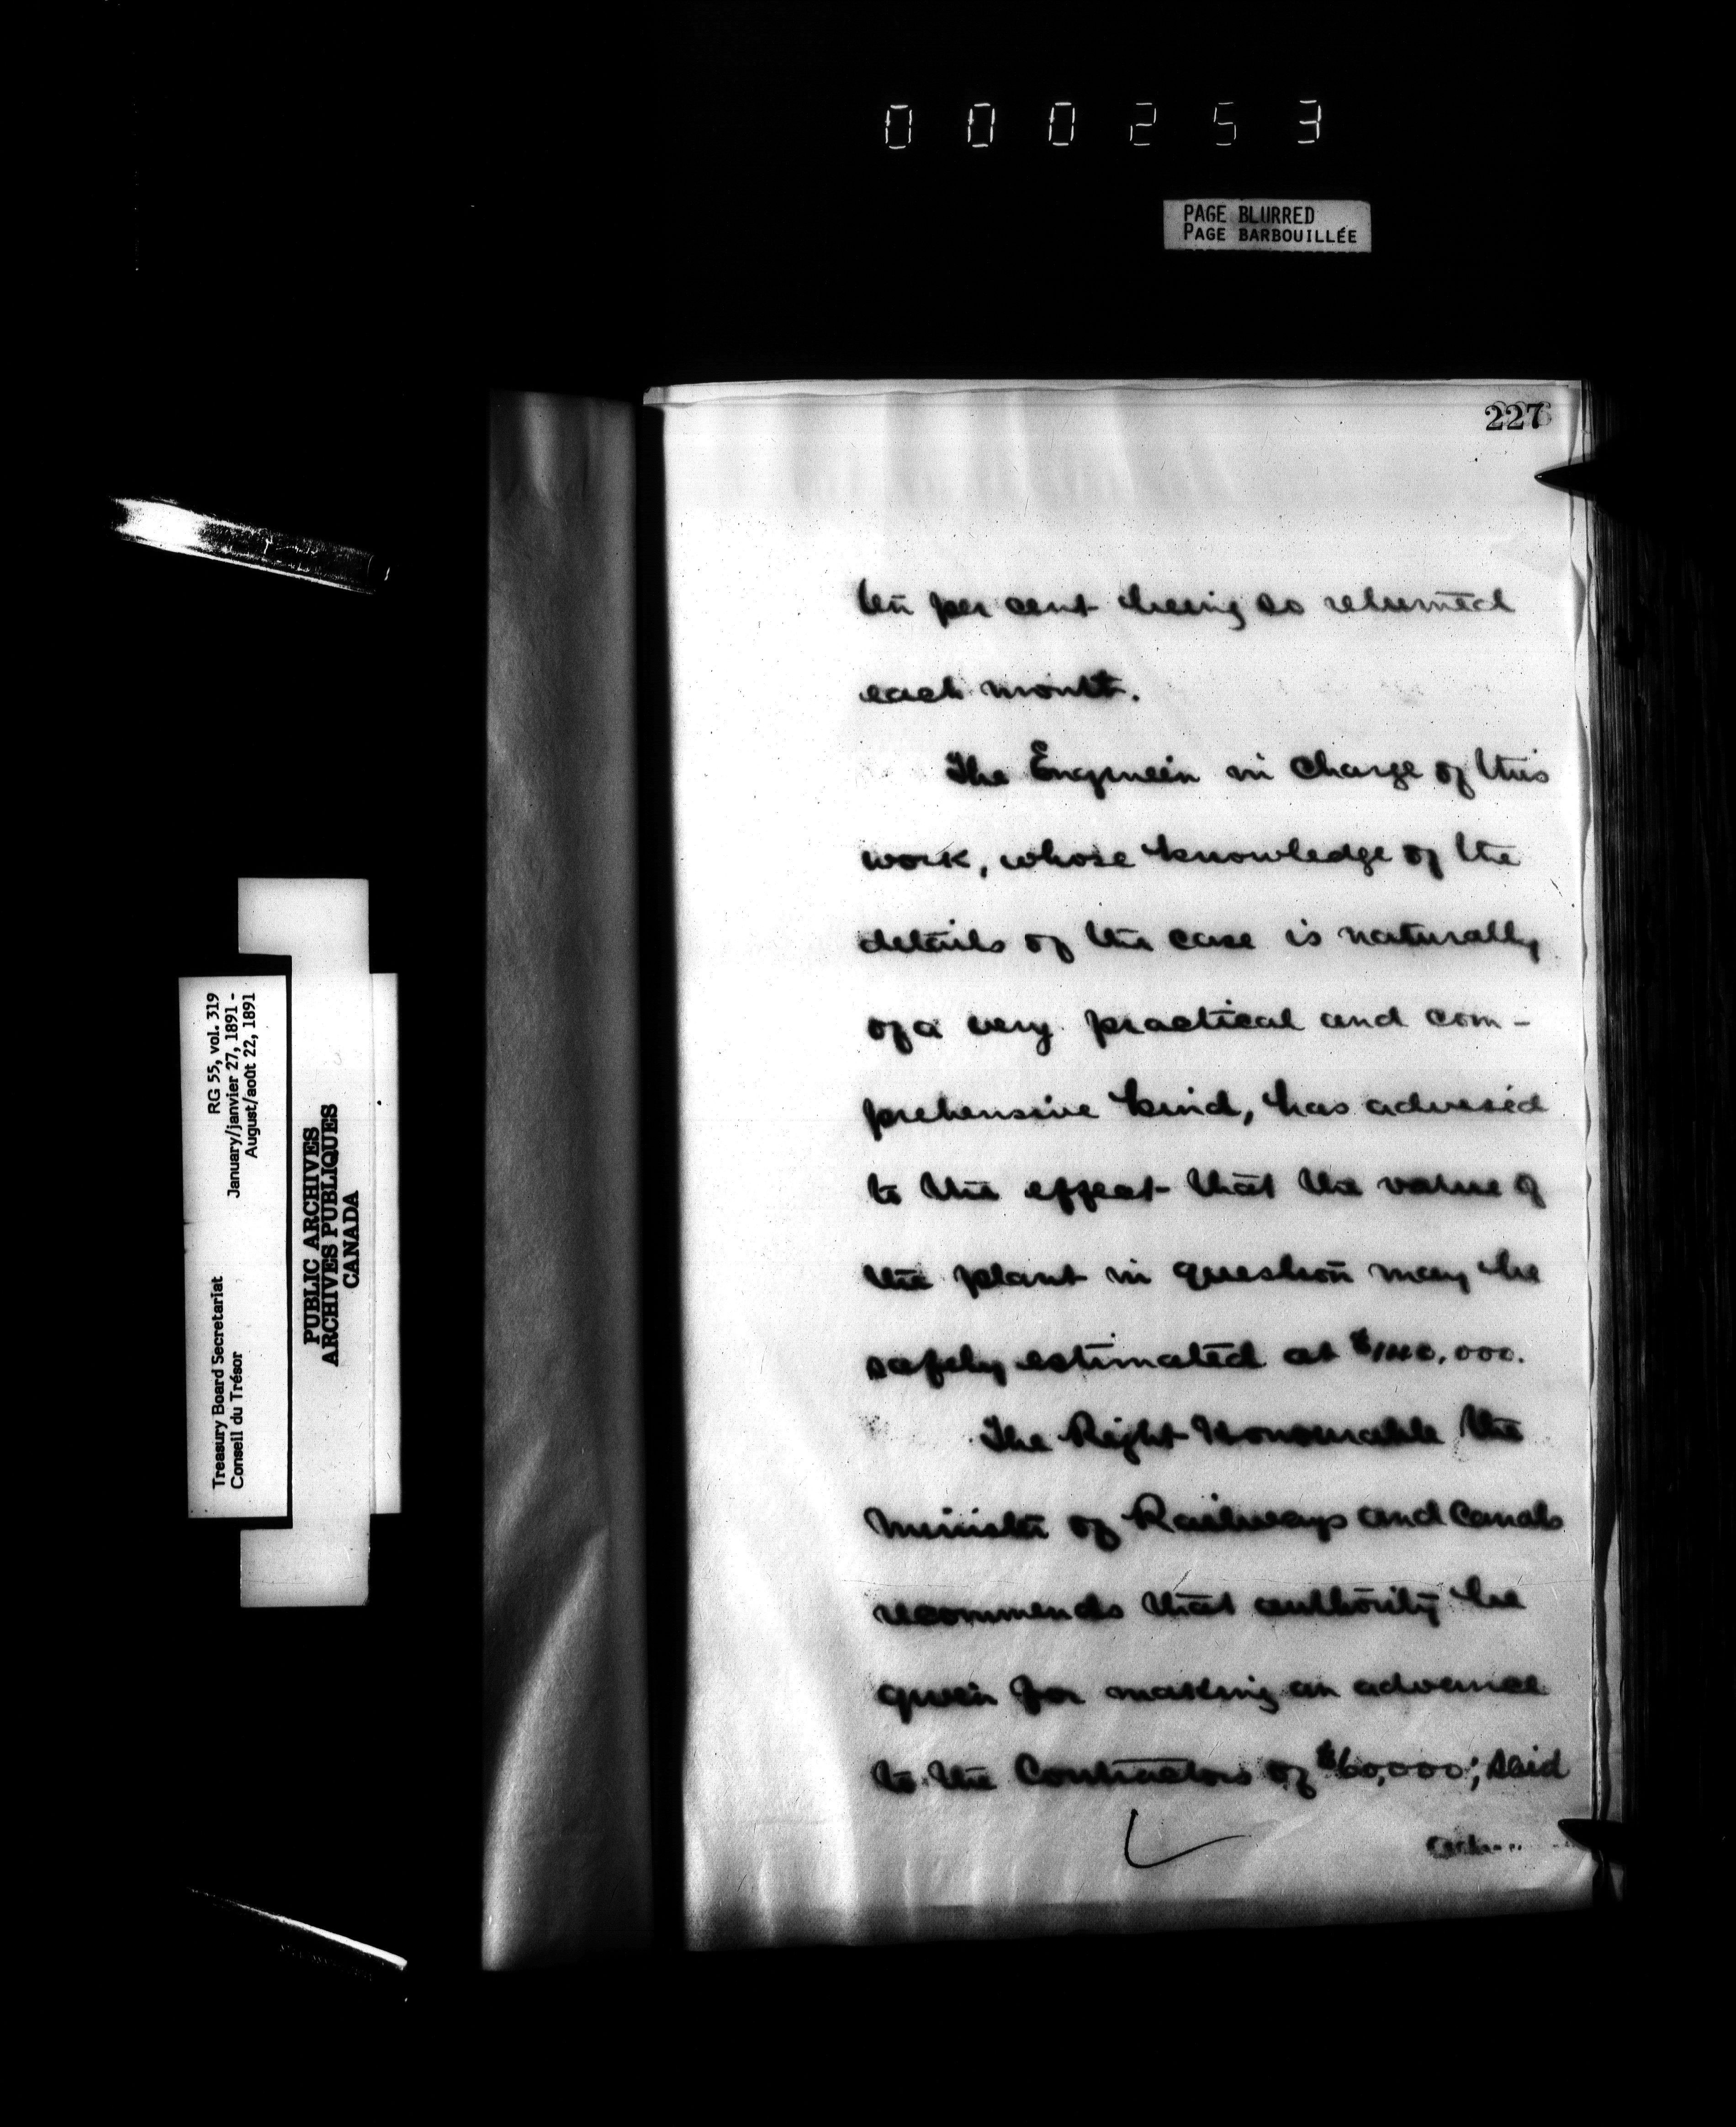 000253
PAGE BLURRED
PAGE BARBOUILLÉE
227
ten per cent being so returned
each month.
The Engineer in charge of this
work, whose knowledge of the
details of the case is naturally
of a very practical and com-
prehensive kind, has advised
to the effect that the value of
the plant in question may be
safely estimated at
The Right Honourable the
Minister of Railways and Canals
recommends that authority be
given for making an advance
to the Contractors of $60,000; said
RG 55, vol. 319
January/janvier 27, 1891 -
August/août 22, 1891
Treasury Board Secretariat
Conseil du Trésor
PUBLIC ARCHIVES
ARCHIVES PUBLIQUES
CANADA